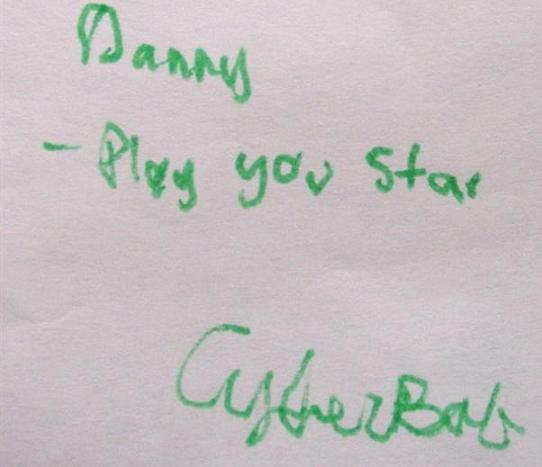 Danny
- Play you star
CyberBob